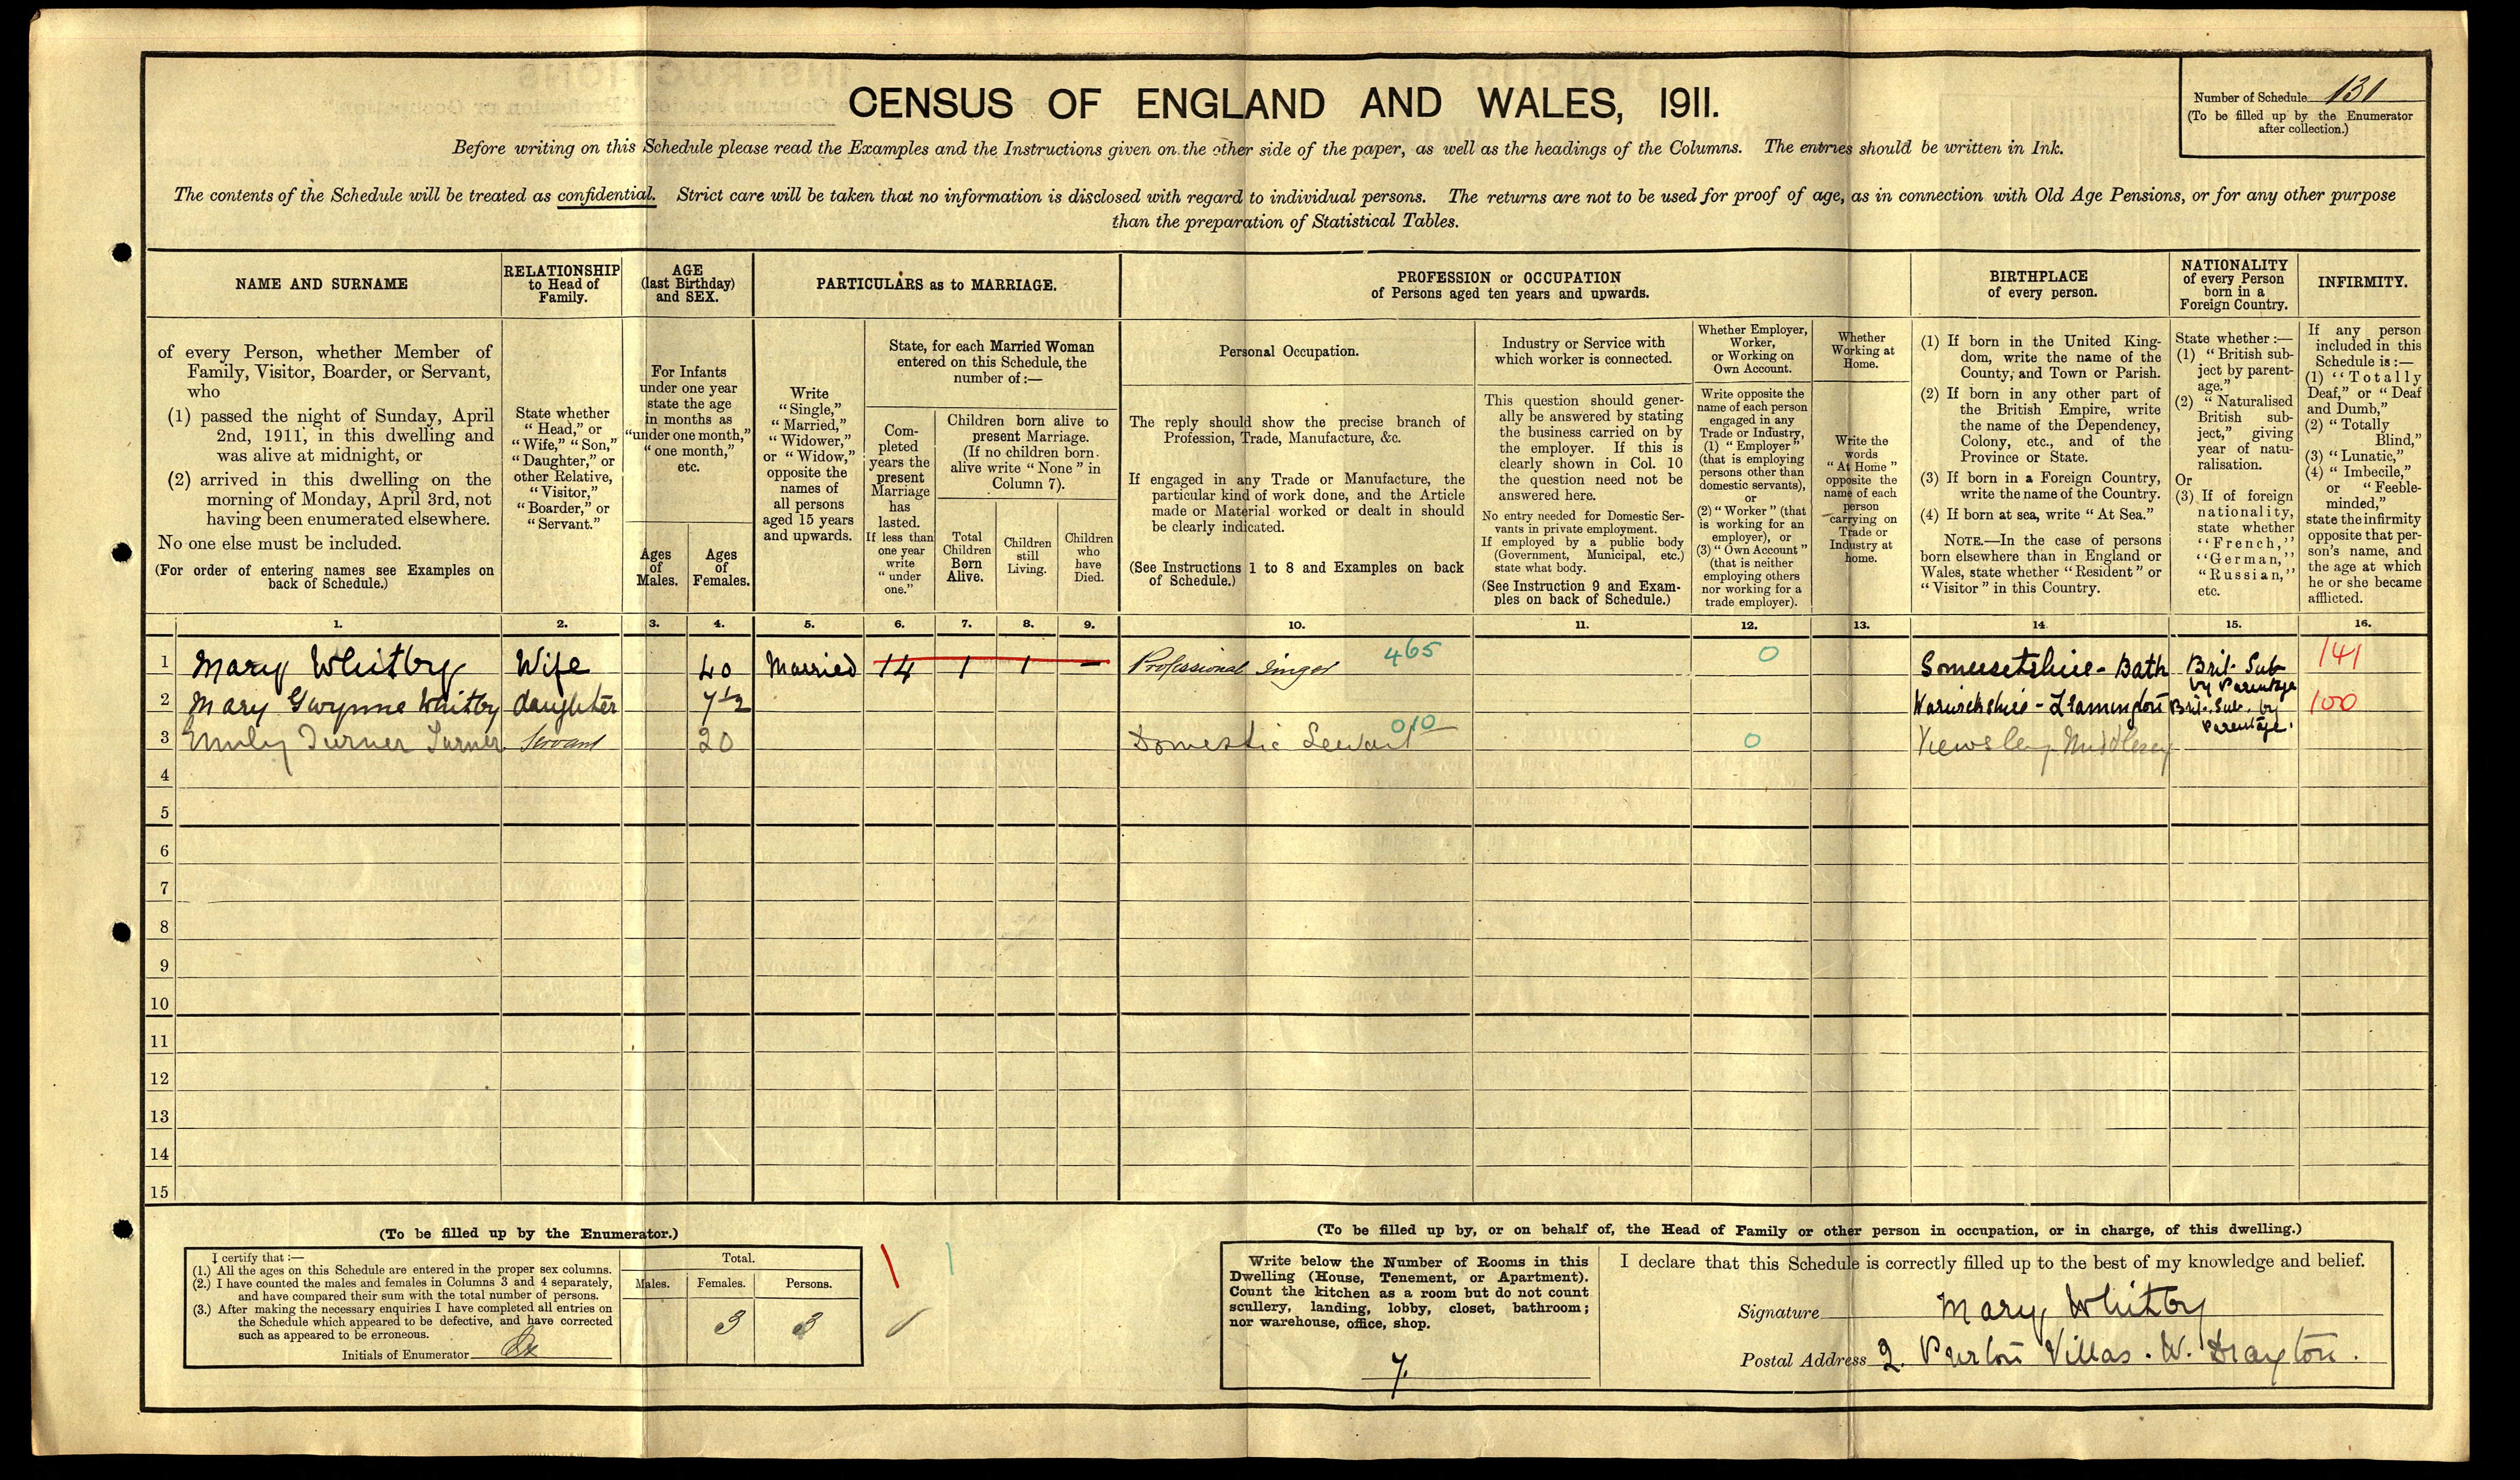 CENSUS OF ENGLAND AND WALES, 1911.
Number of Schedule 131
(To be filled up by the Enumerator
after collection.)
Before writing on this Schedule please read the Examples and the Instructions given on the other side of the paper, as well as the headings of the Columns. The entries should be written in Ink.
The contents of the Schedule will be treated as confidential. Strict care will be taken that no information is disclosed with regard to individual persons. The returns are not to be used for proof of age, as in connection with Old Age Pensions, or for any other purpose
than the preparation of Statistical Tables.
NAME AND SURNAME
of every Person, whether Member of
Family, Visitor, Boarder, or Servant,
who
(1) passed the night of Sunday, April
2nd, 1911, in this dwelling and
was alive at midnight, or
(2) arrived in this dwelling on the
morning of Monday, April 3rd, not
having been enumerated elsewhere.
No one else must be included.
(For order of entering names see Examples on
back of Schedule.)
RELATIONSHIP
to Head of
Family.
State whether
"Head," or
"Wife," "Son,"
"Daughter," or
other Relative,
"Visitor,"
"Boarder," or
"Servant."
AGE
(last Birthday)
and SEX.
For Infants
under one year
state the age
in months as
"under one month,"
"one month,"
etc.
Ages
of
Males.
Ages
of
Females.
PARTICULARS as to MARRIAGE.
Write
"Single,"
"Married,"
"Widower,"
or "Widow,"
opposite the
names of
all persons
aged 15 years
and upwards.
State, for each Married Woman
entered on this Schedule, the
number of:—
Com-
pleted
years the
present
Marriage
has
lasted.
If less than
one year
write
"under
one."
Children born alive to
present Marriage.
(If no children born
alive write "None" in
Column 7).
Total
Children
Born
Alive.
Children
still
Living.
Children
who
have
Died.
PROFESSION or OCCUPATION
of Persons aged ten years and upwards.
Personal Occupation.
The reply should show the precise branch of
Profession, Trade, Manufacture, &c.
If engaged in any Trade or Manufacture, the
particular kind of work done, and the Article
made or Material worked or dealt in should
be clearly indicated.
(See Instructions 1 to 8 and Examples on back
of Schedule.)
Industry or Service with
which worker is connected.
This question should gener-
ally be answered by stating
the business carried on by
the employer. If this is
clearly shown in Col. 10
the question need not be
answered here.
No entry needed for Domestic Ser-
vants in private employment.
If employed by a public body
(Government, Municipal, etc.)
state what body.
(See Instruction 9 and Exam-
ples on back of Schedule.)
Whether Employer,
Worker,
or Working on
Own Account.
Write opposite the
name of each person
engaged in any
Trade or Industry,
(1) "Employer"
(that is employing
persons other than
domestic servants),
or
(2) "Worker" (that
is working for an
employer), or
(3) "Own Account"
(that is neither
employing others
nor working for a
trade employer).
Whether
Working at
Home.
Write the
words
"At Home"
opposite the
name of each
person
carrying on
Trade or
Industry at
home.
BIRTHPLACE
of every person.
(1) If born in the United King-
dom, write the name of the
County, and Town or Parish.
(2) If born in any other part of
the British Empire, write
the name of the Dependency,
Colony, etc., and of the
Province or State.
(3) If born in a Foreign Country,
write the name of the Country.
(4) If born at sea, write "At Sea."
NOTE.—In the case of persons
born elsewhere than in England or
Wales, state whether "Resident" or
"Visitor" in this Country.
NATIONALITY
of every Person
born in a
Foreign Country.
State whether:—
(1) "British sub-
ject by parent-
age."
(2) "Naturalised
British sub-
ject," giving
year of natu-
ralisation.
Or
(3) If of foreign
nationality,
state whether
"French,"
"German,"
"Russian,"
etc.
INFIRMITY.
If any person
included in this
Schedule is:—
(1) "Totally
Deaf," or "Deaf
and Dumb,"
(2) "Totally
Blind,"
(3) "Lunatic,"
(4) "Imbecile,"
or "Feeble-
minded,"
state the infirmity
opposite that per-
son's name, and
the age at which
he or she became
afflicted.
1. 2. 3. 4. 5. 6. 7. 8. 9. 10. 11. 12. 13. 14. 15. 16.
1 Mary Whitby Wife 40 Married 14 1 1 — Professional Singer 465 0 Somersetshire - Bath Brit. Sub by Parentage 141
2 Mary Gwynne Whitby daughter 7½ Warwickshire - Leamington Brit. Sub. by Parentage. 100
3 Emily Turner Turner Servant 20 Domestic Servant 010 0 Yiewsley Middlesex
4
5
6
7
8
9
10
11
12
13
14
15
(To be filled up by the Enumerator.)
I certify that:—
(1.) All the ages on this Schedule are entered in the proper sex columns.
(2.) I have counted the males and females in Columns 3 and 4 separately,
and have compared their sum with the total number of persons.
(3.) After making the necessary enquiries I have completed all entries on
the Schedule which appeared to be defective, and have corrected
such as appeared to be erroneous.
Initials of Enumerator
Total.
Males. Females. Persons.
3 3
(To be filled up by, or on behalf of, the Head of Family or other person in occupation, or in charge, of this dwelling.)
Write below the Number of Rooms in this
Dwelling (House, Tenement, or Apartment).
Count the kitchen as a room but do not count
scullery, landing, lobby, closet, bathroom;
nor warehouse, office, shop.
7.
I declare that this Schedule is correctly filled up to the best of my knowledge and belief.
Signature Mary Whitby
Postal Address 2. Purton Villas. W. Drayton.